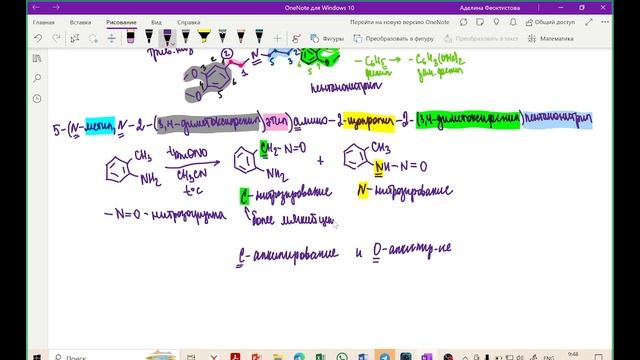 OneNote для Windows 10
Аделина Феоктистова
Главная Вставка Рисование Вид Справка
Перейти на новую версию OneNote
Общий доступ
Фигуры
Преобразовать в фигуру
Преобразовать в
трив. наз
2 3 4 5 6
N
-C6H5 → -C6H3(OMe)2
фенил зам. фенил
пентанонитрил
5-(N-метил, N-2-(3,4-диметоксифенил)этил)амино-2-изопропил-2-(3,4-диметоксифенил)пентанонитрил
CH3 NH2 tBuONO CH3CN t°C CH2-N=O NH2 + CH3 NH-N=O
C-нитрозирование N-нитрозирование
-N=O-нитрозогруппа
более мягкий
C-алкилирование и O-алкил-ие
Поиск
ENG 9:48